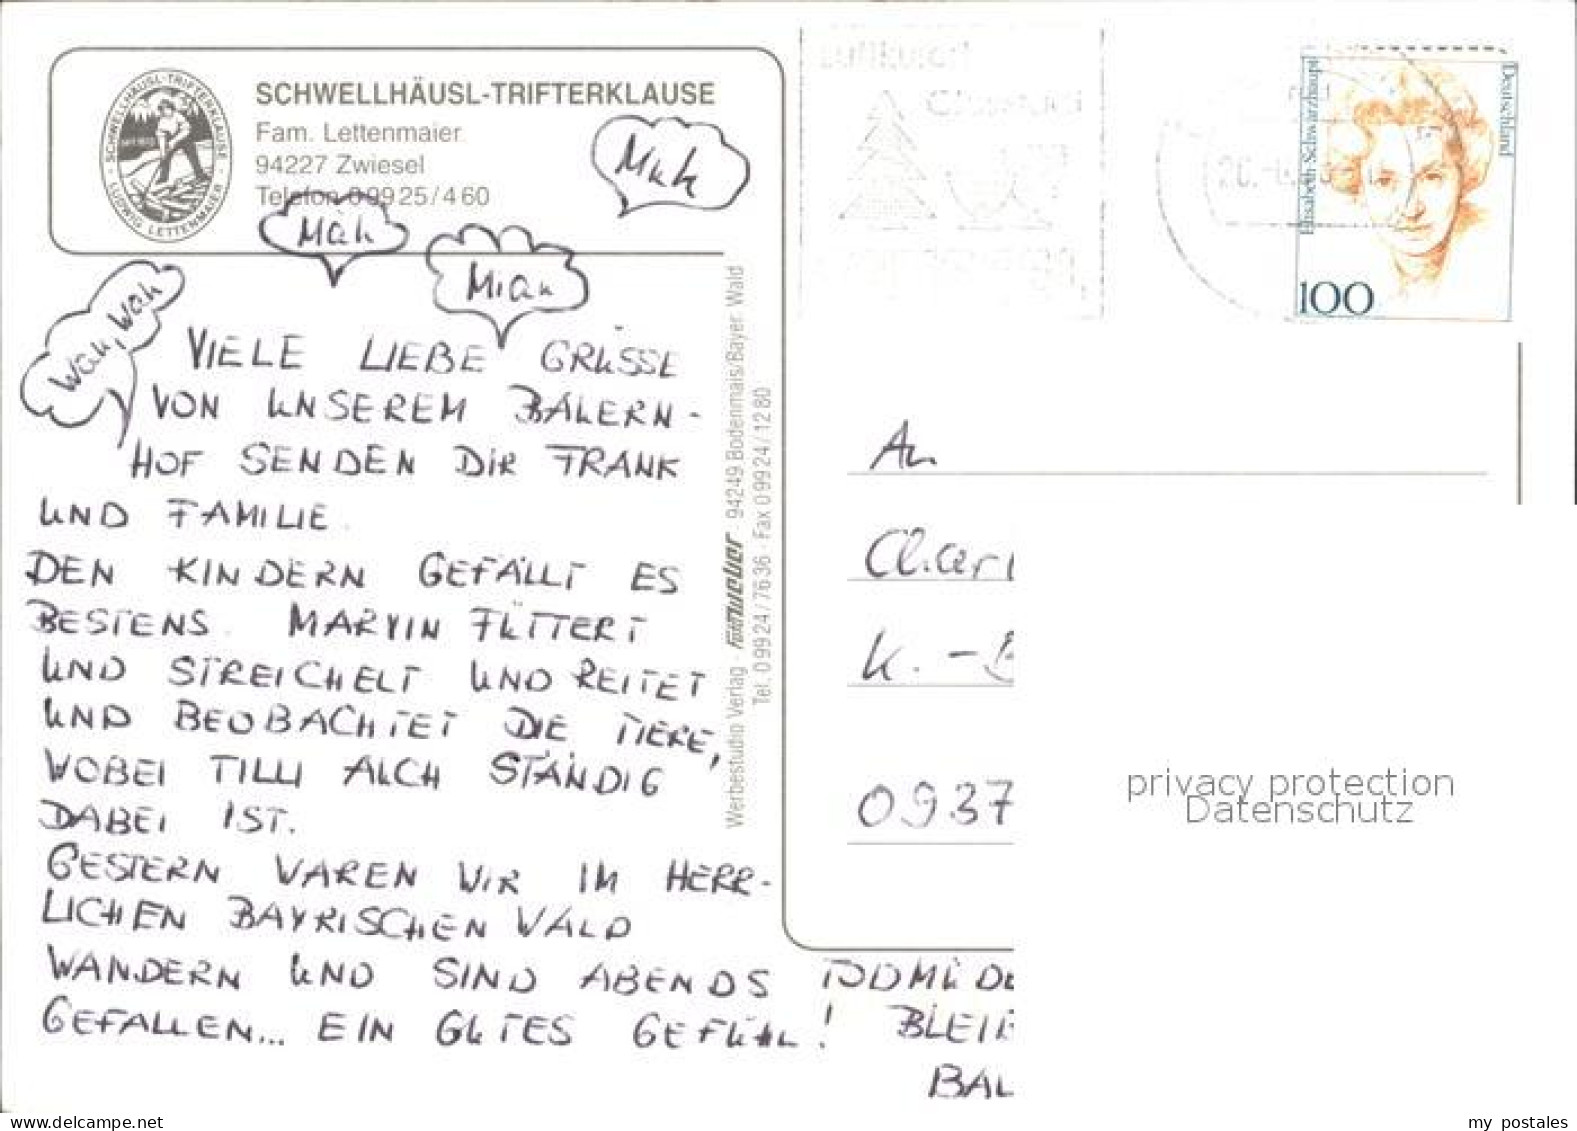 SCHWELLHÄUSL-TRIFTERKLAUSE
SCHWELLHÄUSL-TRIFTERKLAUSE
LUDWIG LETTENMAIER
Fam. Lettenmaier
94227 Zwiesel
Telefon 09925/460
Muh
Mäh
Miau
Wau, Wau
VIELE LIEBE GRÜSSE
VON UNSEREM BAUERN-
HOF SENDEN DIR FRANK
UND FAMILIE.
DEN KINDERN GEFÄLLT ES
BESTENS. MARVIN FÜTTERT
UND STREICHELT UND REITET
UND BEOBACHTET DIE TIERE,
WOBEI TILLI AUCH STÄNDIG
DABEI IST.
GESTERN WAREN WIR IM HERR-
LICHEN BAYRISCHEN WALD
WANDERN UND SIND ABENDS TODMÜDE
GEFALLEN... EIN GUTES GEFÜHL! BLEIB
BAL
Werbestudio Verlag · 94249 Bodenmais/Bayer. Wald
Tel. 09924/7636 · Fax 09924/1280
Deutschland
Elisabeth Schwarzhaupt
100
An
K.-B
0937
privacy protection
Datenschutz
my postales